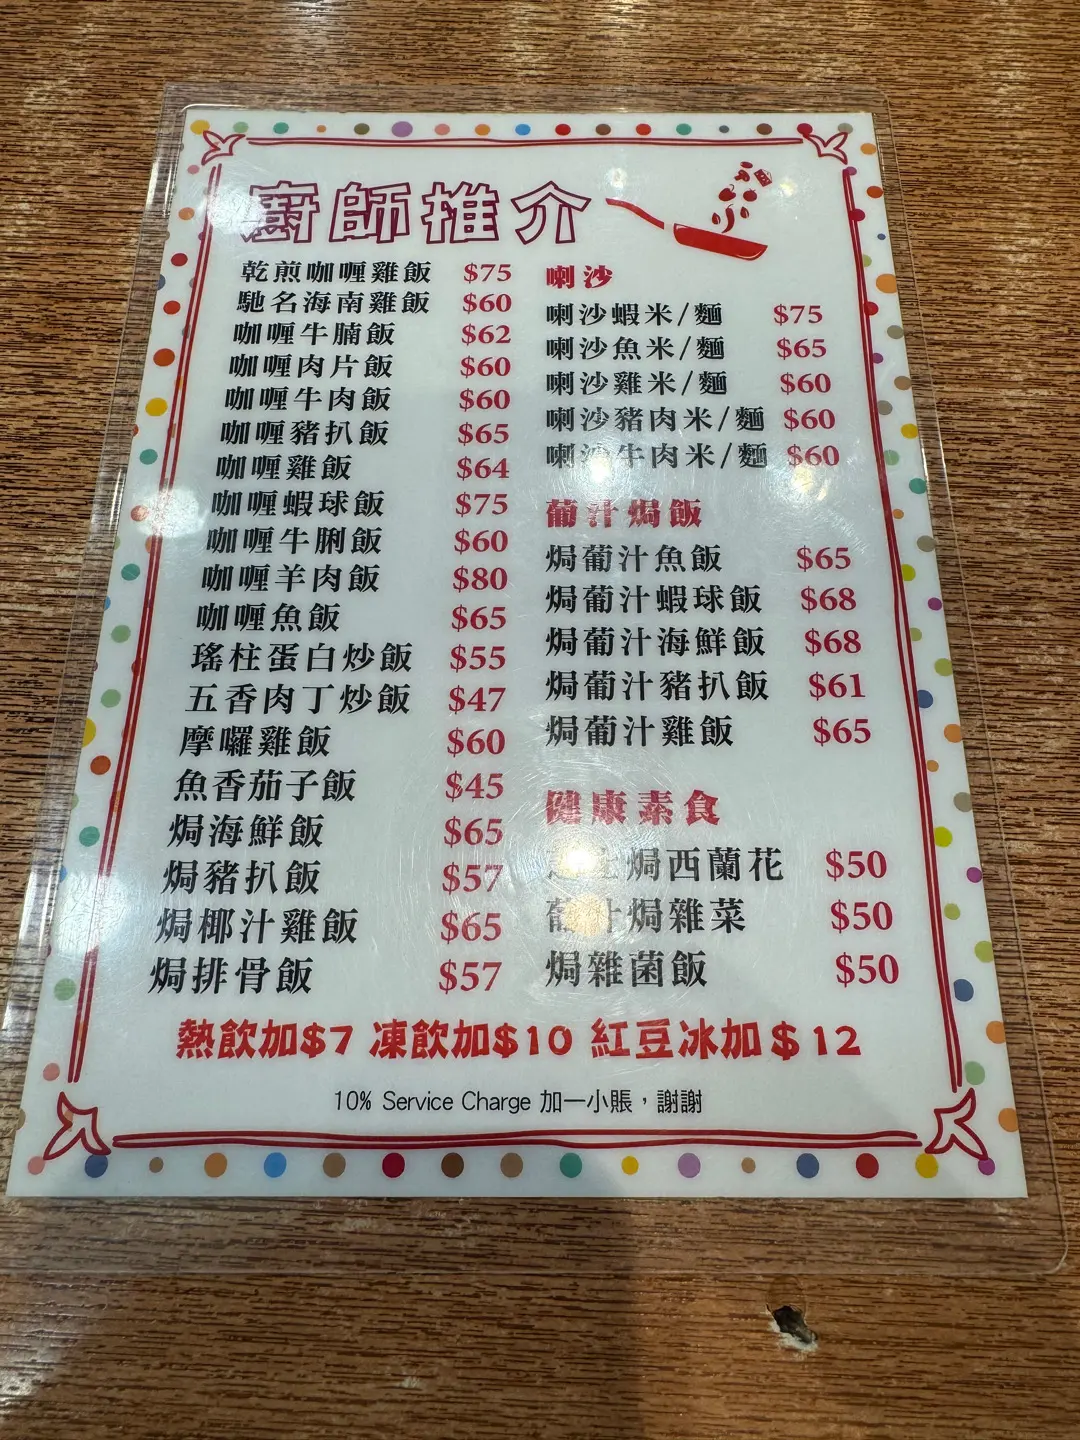 廚師推介
乾煎咖喱雞飯 $75
馳名海南雞飯 $60
咖喱牛腩飯 $62
咖喱肉片飯 $60
咖喱牛肉飯 $60
咖喱豬扒飯 $65
咖喱雞飯 $64
咖喱蝦球飯 $75
咖喱牛脷飯 $60
咖喱羊肉飯 $80
咖喱魚飯 $65
瑤柱蛋白炒飯 $55
五香肉丁炒飯 $47
摩囉雞飯 $60
魚香茄子飯 $45
焗海鮮飯 $65
焗豬扒飯 $57
焗椰汁雞飯 $65
焗排骨飯 $57
喇沙
喇沙蝦米/麵 $75
喇沙魚米/麵 $65
喇沙雞米/麵 $60
喇沙豬肉米/麵 $60
喇沙牛肉米/麵 $60
葡汁焗飯
焗葡汁魚飯 $65
焗葡汁蝦球飯 $68
焗葡汁海鮮飯 $68
焗葡汁豬扒飯 $61
焗葡汁雞飯 $65
健康素食
焗西蘭花 $50
葡汁焗雜菜 $50
焗雜菌飯 $50
熱飲加$7 凍飲加$10 紅豆冰加$12
10% Service Charge 加一小賬，謝謝